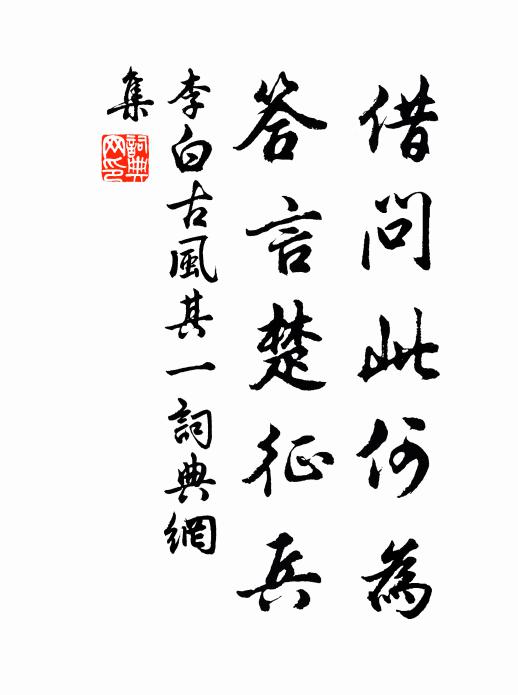 借問此何為
答言楚征兵
李白古風其一詞典網
集
詞典
网印